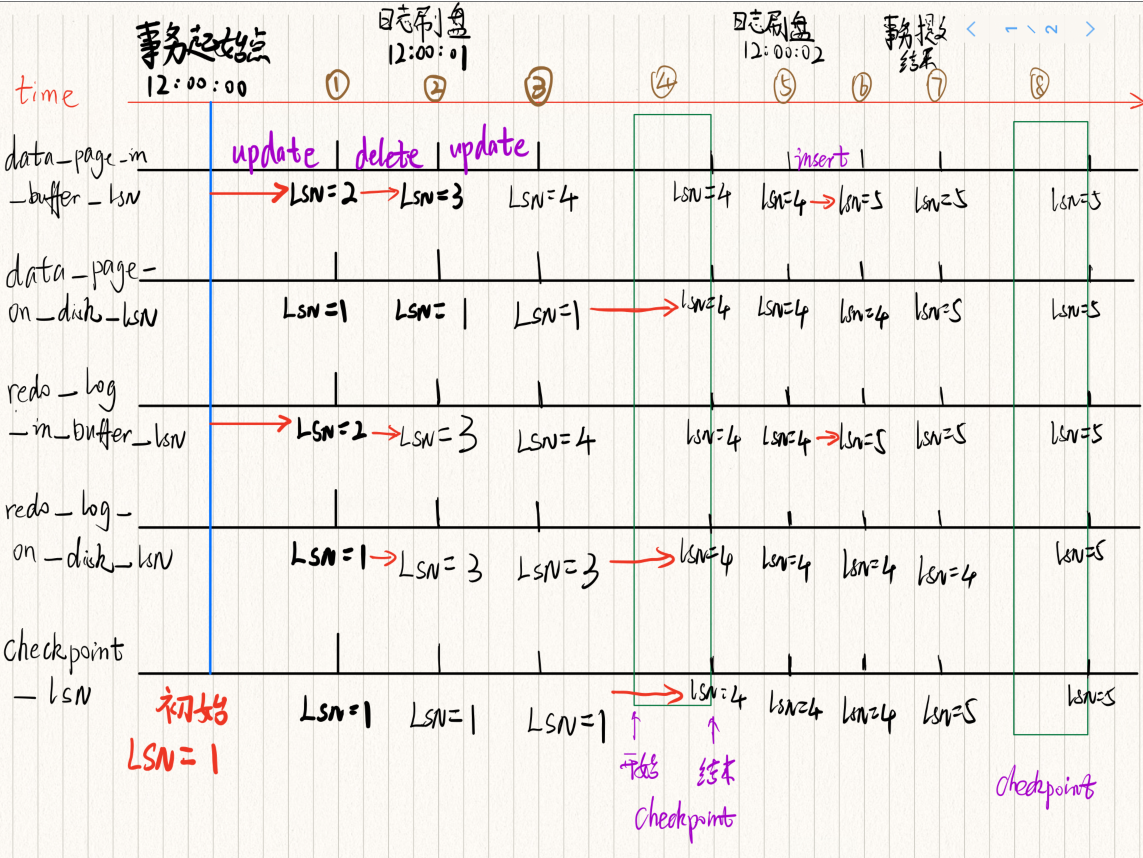 事务起始点 日志刷盘 日志刷盘 事务提交
12:00:00 12:00:01 12:00:02 结果
< 1 \ 2 >
time ① ② ③ ④ ⑤ ⑥ ⑦ ⑧
data_page_in update delete update insert
_buffer_LSN LSN=2 LSN=3 LSN=4 LSN=4 LSN=4 LSN=5 LSN=5 LSN=5
data_page_
on_disk_LSN LSN=1 LSN=1 LSN=1 LSN=4 LSN=4 LSN=4 LSN=5 LSN=5
redo_log
_in_buffer_LSN LSN=2 LSN=3 LSN=4 LSN=4 LSN=4 LSN=5 LSN=5 LSN=5
redo_log_
on_disk_LSN LSN=1 LSN=3 LSN=3 LSN=4 LSN=4 LSN=4 LSN=4 LSN=5
checkpoint
_LSN LSN=1 LSN=1 LSN=1 LSN=4 LSN=4 LSN=4 LSN=5 LSN=5
初始
LSN=1
开始 结束
checkpoint
checkpoint